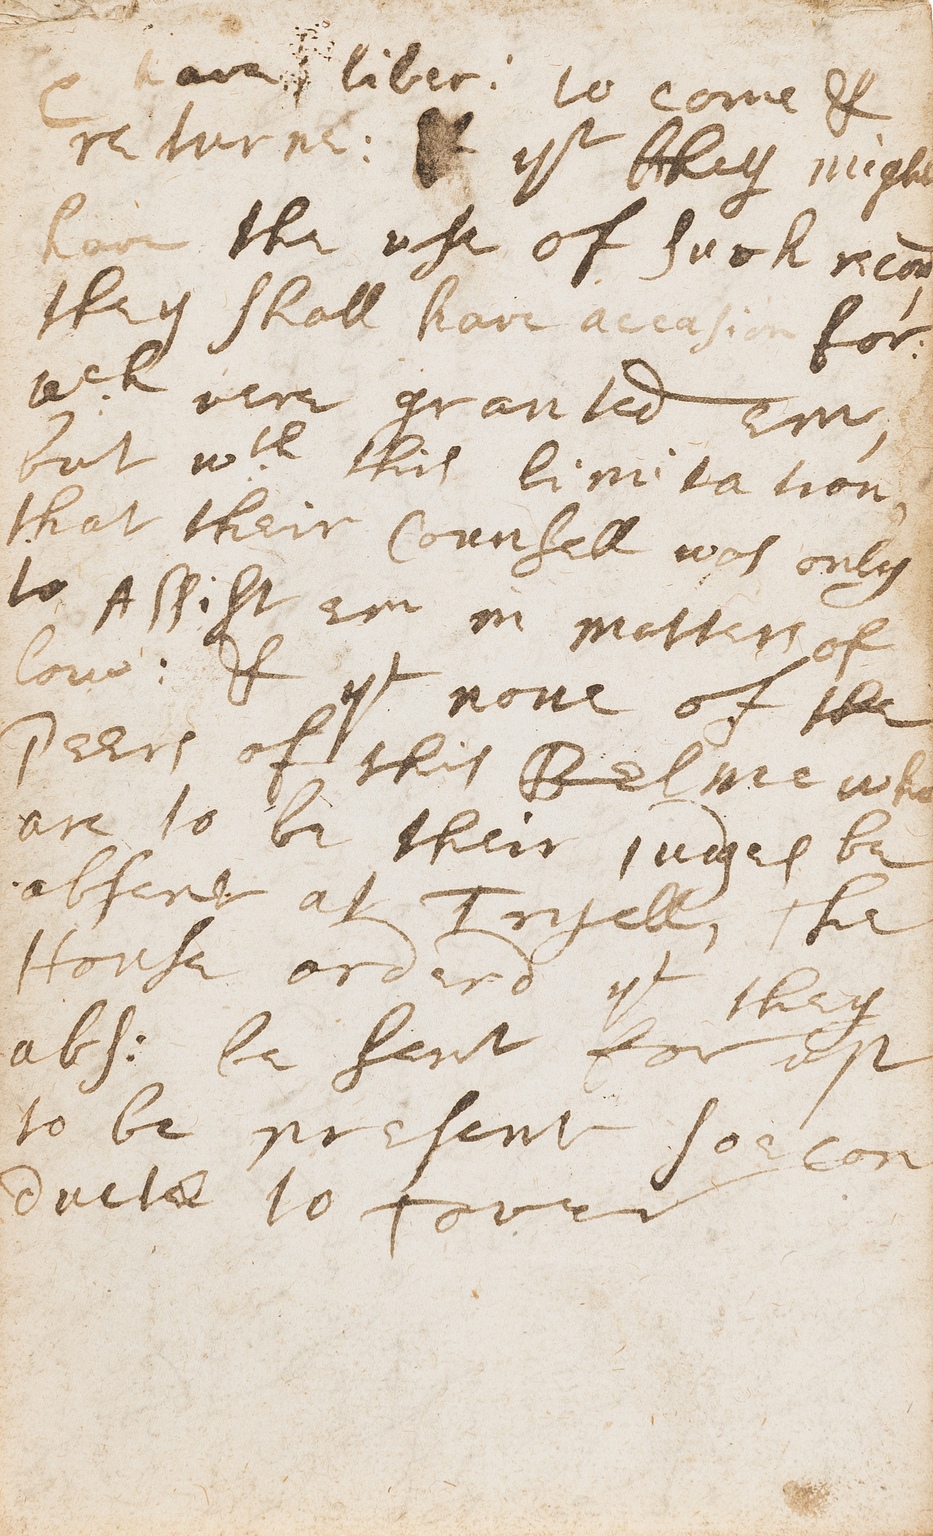 have liber: to come &
returne: & yt they might
have the use of such recor
they shall have accasion for:
wch were granted em,
but wth this limitation,
that their Counsell was only
to Assist em in matters of
law: & yt none of the
Peers of this Relme who
are to be their judges be
absent at Tryell, the
House orderd yt they
abs: be sent for up
to be present soe con
ducted to Tower